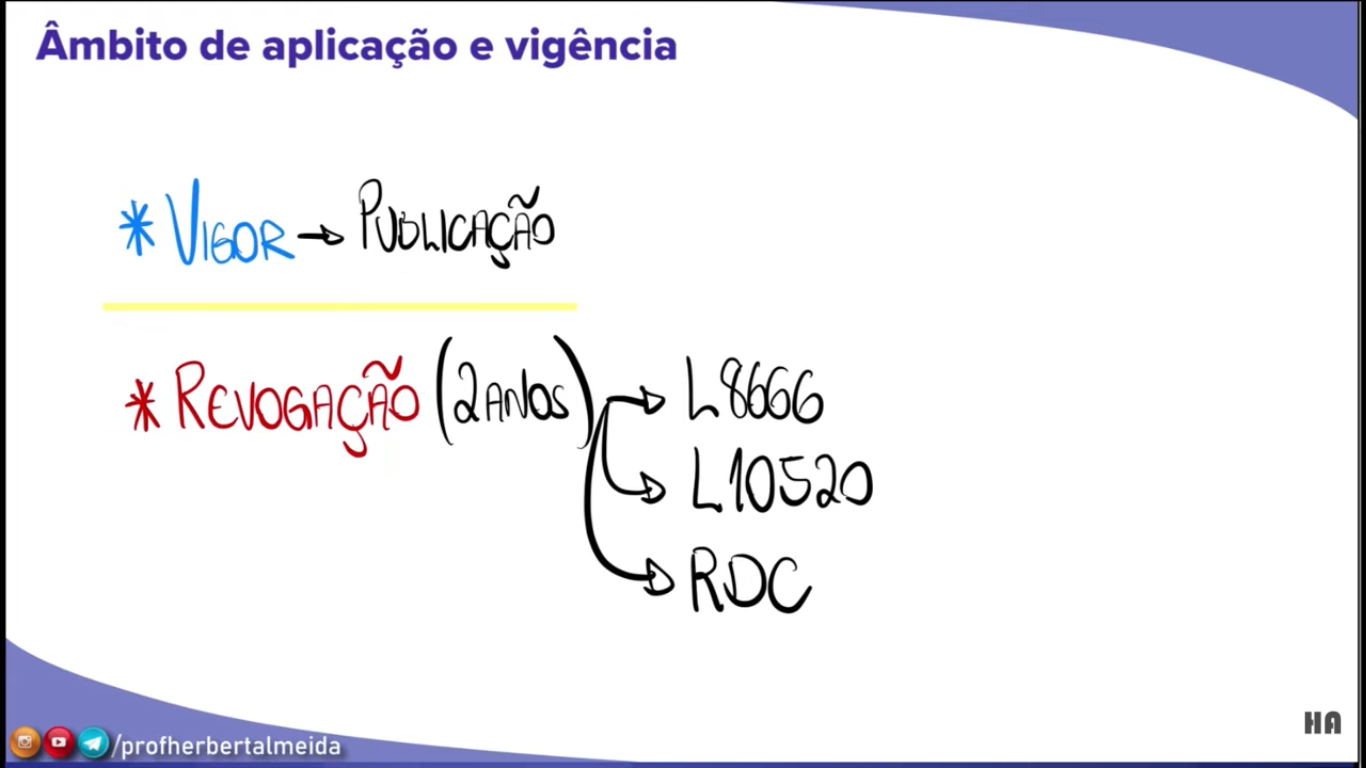 Âmbito de aplicação e vigência
* VIGOR → PUBLICAÇÃO
* REVOGAÇÃO (2 ANOS) → L8666
→ L10520
→ RDC
HA
/profherbertalmeida